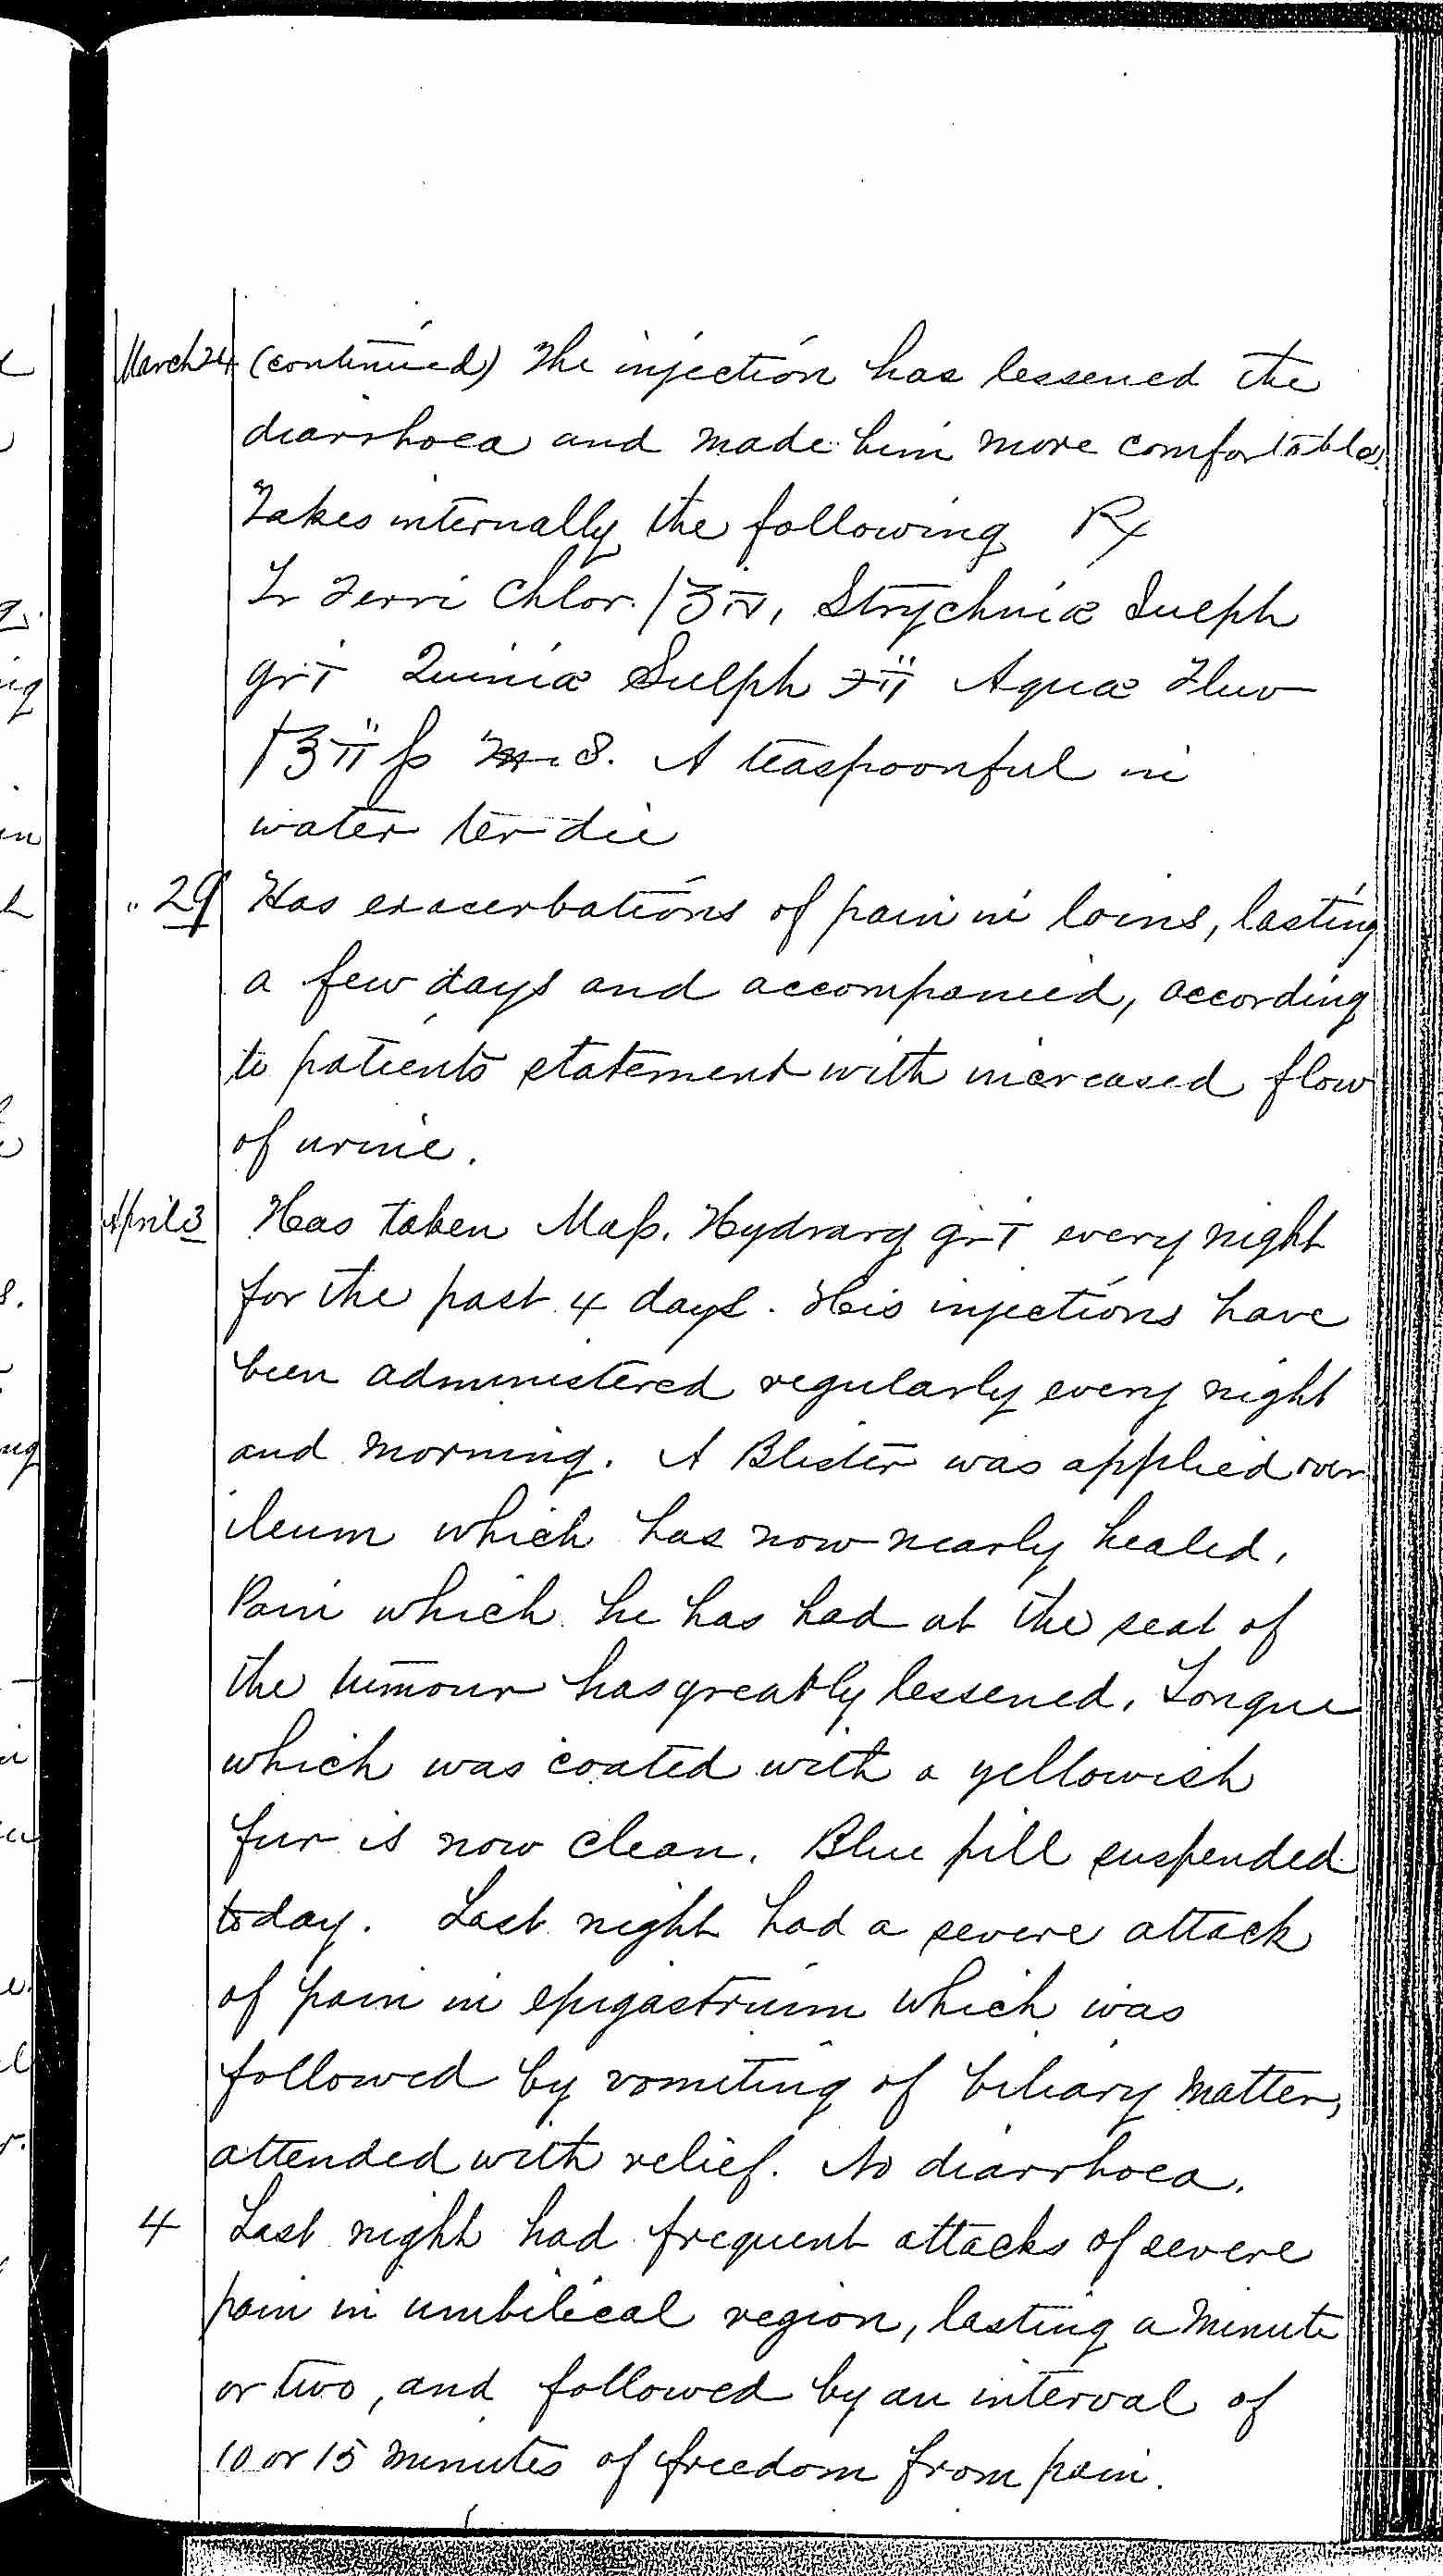 March 24 (continued) The injection has lessened the
diarrhoea and made him more comfortable.
Takes internally the following ℞
Tr Ferri Chlor. f℥iv, Strychniæ Sulph
gr i Quiniæ Sulph ℈ii Aquæ Fluv
f℥ii ss M. S. A teaspoonful in
water ter die
" 29 Has exacerbations of pain in loins, lasting
a few days and accompanied, according
to patients statement with increased flow
of urine.
April 3 Has taken Mass. Hydrarg gr i every night
for the past 4 days. His injections have
been administered regularly every night
and morning. A Blister was applied over
ileum which has now nearly healed.
Pain which he has had at the seat of
the tumour has greatly lessened. Tongue
which was coated with a yellowish
fur is now clean. Blue pill suspended
today. Last night had a severe attack
of pain in epigastrium which was
followed by vomiting of biliary matter,
attended with relief. No diarrhoea.
4 Last night had frequent attacks of severe
pain in umbilical region, lasting a minute
or two, and followed by an interval of
10 or 15 minutes of freedom from pain.